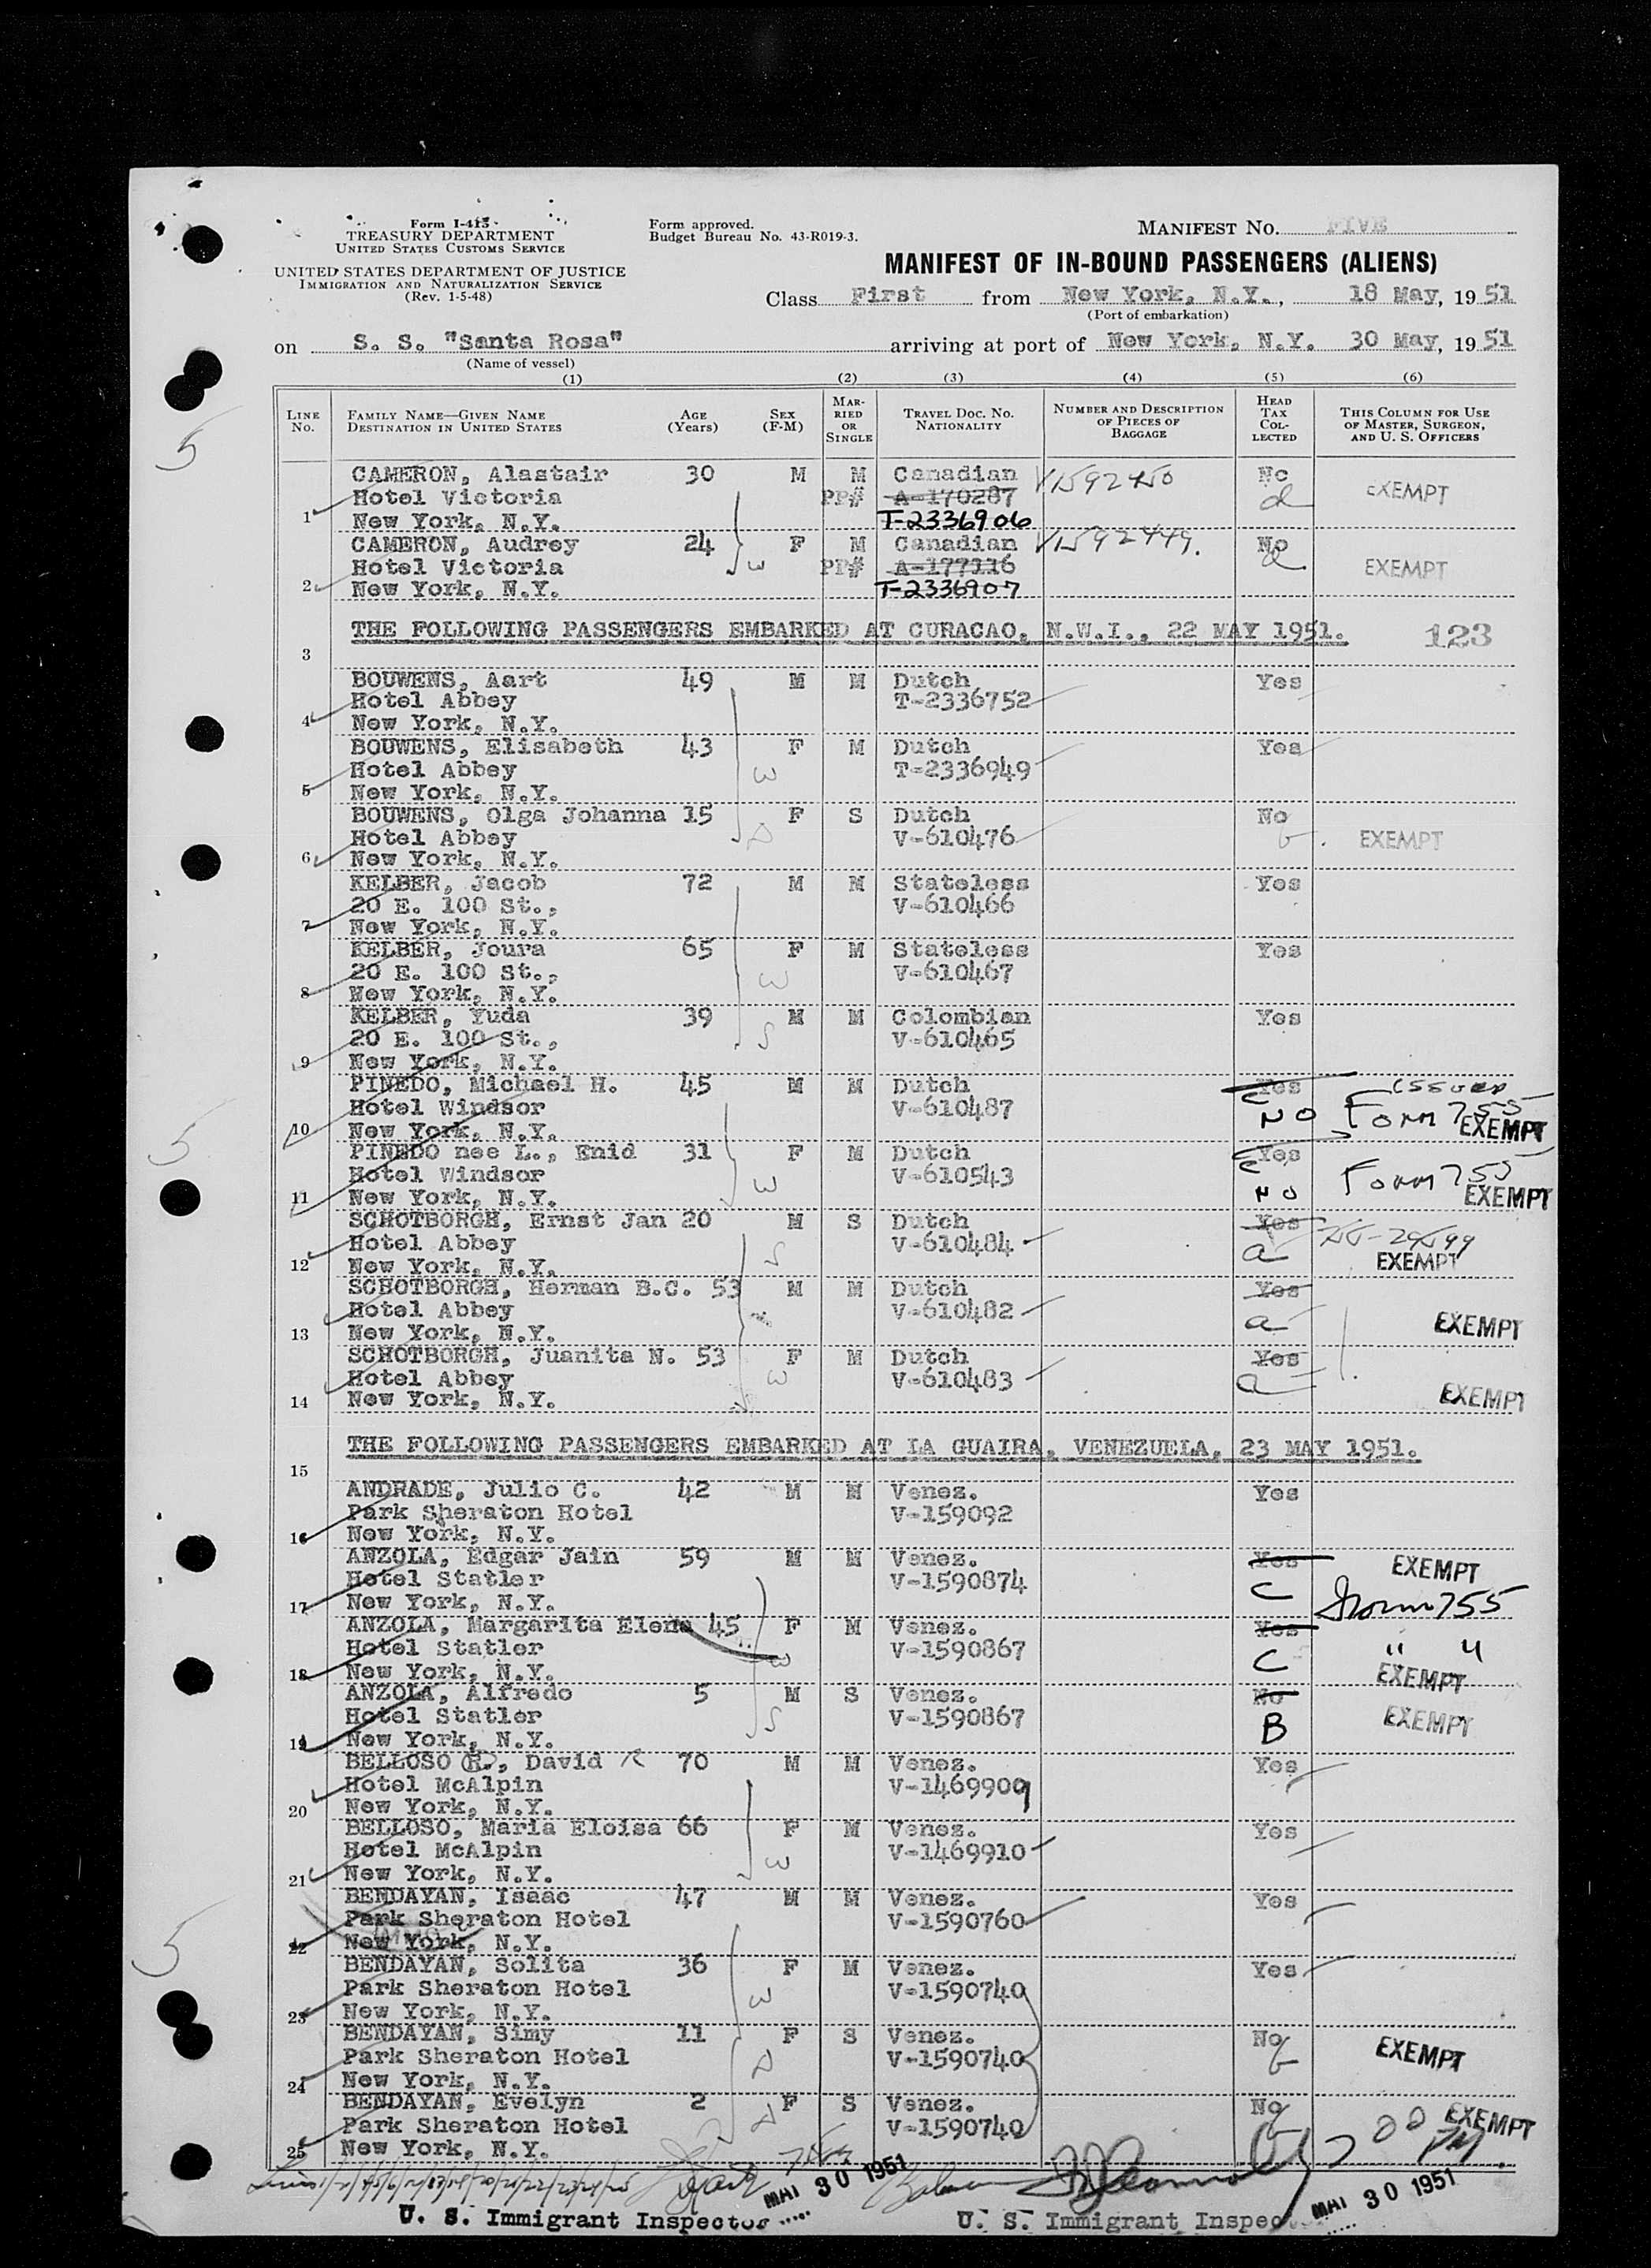 Form I-415
TREASURY DEPARTMENT
UNITED STATES CUSTOMS SERVICE
UNITED STATES DEPARTMENT OF JUSTICE
IMMIGRATION AND NATURALIZATION SERVICE
(Rev. 1-5-48)
Form approved.
Budget Bureau No. 43-R019-3.
MANIFEST No. FIVE
MANIFEST OF IN-BOUND PASSENGERS (ALIENS)
Class First from New York, N.Y., 18 May, 1951
(Port of embarkation)
on S. S. "Santa Rosa" arriving at port of New York, N.Y. 30 May, 1951
(Name of vessel)
(1) (2) (3) (4) (5) (6)
LINE No. FAMILY NAME—GIVEN NAME DESTINATION IN UNITED STATES AGE (Years) SEX (F-M) MARRIED OR SINGLE TRAVEL DOC. No. NATIONALITY NUMBER AND DESCRIPTION OF PIECES OF BAGGAGE HEAD TAX COLLECTED THIS COLUMN FOR USE OF MASTER, SURGEON, AND U. S. OFFICERS
5
CAMERON, Alastair 30 M M Canadian V1592450 No
Hotel Victoria PP# A-170287 a EXEMPT
1 New York, N.Y. T-2336906
CAMERON, Audrey 24 F M Canadian V1592449. No
Hotel Victoria W PP# A-177316 a EXEMPT
2 New York, N.Y. T-2336907
THE FOLLOWING PASSENGERS EMBARKED AT CURACAO, N.W.I., 22 MAY 1951. 123
3
BOUWENS, Aart 49 M M Dutch Yes
Hotel Abbey T-2336752
4 New York, N.Y.
BOUWENS, Elisabeth 43 F M Dutch Yes
Hotel Abbey W T-2336949
5 New York, N.Y.
BOUWENS, Olga Johanna 15 F S Dutch No
Hotel Abbey D V-610476 b EXEMPT
6 New York, N.Y.
KELBER, Jacob 72 M M Stateless Yes
20 E. 100 St., V-610466
7 New York, N.Y.
KELBER, Joura 65 F M Stateless Yes
20 E. 100 St., W V-610467
8 New York, N.Y.
KELBER, Yuda 39 M M Colombian Yes
20 E. 100 St., S V-610465
9 New York, N.Y.
PINEDO, Michael H. 45 M M Dutch Yes issued
Hotel Windsor V-610487 C NO Form 755
10 New York, N.Y. EXEMPT
5
PINEDO nee L., Enid 31 F M Dutch Yes
Hotel Windsor W V-610543 C Form 755
11 New York, N.Y. NO EXEMPT
SCHOTBORGH, Ernst Jan 20 M S Dutch Yes
Hotel Abbey S V-610484 a
12 New York, N.Y. EXEMPT
SCHOTBORGH, Herman B.C. 53 M M Dutch Yes
Hotel Abbey V-610482 a EXEMPT
13 New York, N.Y.
SCHOTBORGH, Juanita N. 53 F M Dutch Yes
Hotel Abbey W V-610483 a
14 New York, N.Y. EXEMPT
THE FOLLOWING PASSENGERS EMBARKED AT LA GUAIRA, VENEZUELA, 23 MAY 1951.
15
ANDRADE, Julio C. 42 M M Venez. Yes
Park Sheraton Hotel V-159092
16 New York, N.Y.
ANZOLA, Edgar Jain 59 M M Venez. Yes EXEMPT
Hotel Statler V-1590874 C Form 755
17 New York, N.Y.
ANZOLA, Margarita Elena 45 F M Venez. Yes
Hotel Statler W V-1590867 C " "
18 New York, N.Y. EXEMPT
ANZOLA, Alfredo 5 M S Venez. No
Hotel Statler S V-1590867 B EXEMPT
19 New York, N.Y.
BELLOSO R., David R 70 M M Venez. Yes
Hotel McAlpin V-1469909
20 New York, N.Y.
BELLOSO, Maria Eloisa 66 F M Venez. Yes
Hotel McAlpin W V-1469910
21 New York, N.Y.
BENDAYAN, Isaac 47 M M Venez. Yes
Park Sheraton Hotel V-1590760
22 New York, N.Y.
5
BENDAYAN, Solita 36 F M Venez. Yes
Park Sheraton Hotel W V-1590740
23 New York, N.Y.
BENDAYAN, Simy 11 F S Venez. No
Park Sheraton Hotel D V-1590740 b EXEMPT
24 New York, N.Y.
BENDAYAN, Evelyn 2 F S Venez. No
Park Sheraton Hotel D V-1590740 EXEMPT
25 New York, N.Y.
MAI 30 1951
MAI 30 1951
U. S. Immigrant Inspector
U. S. Immigrant Inspec